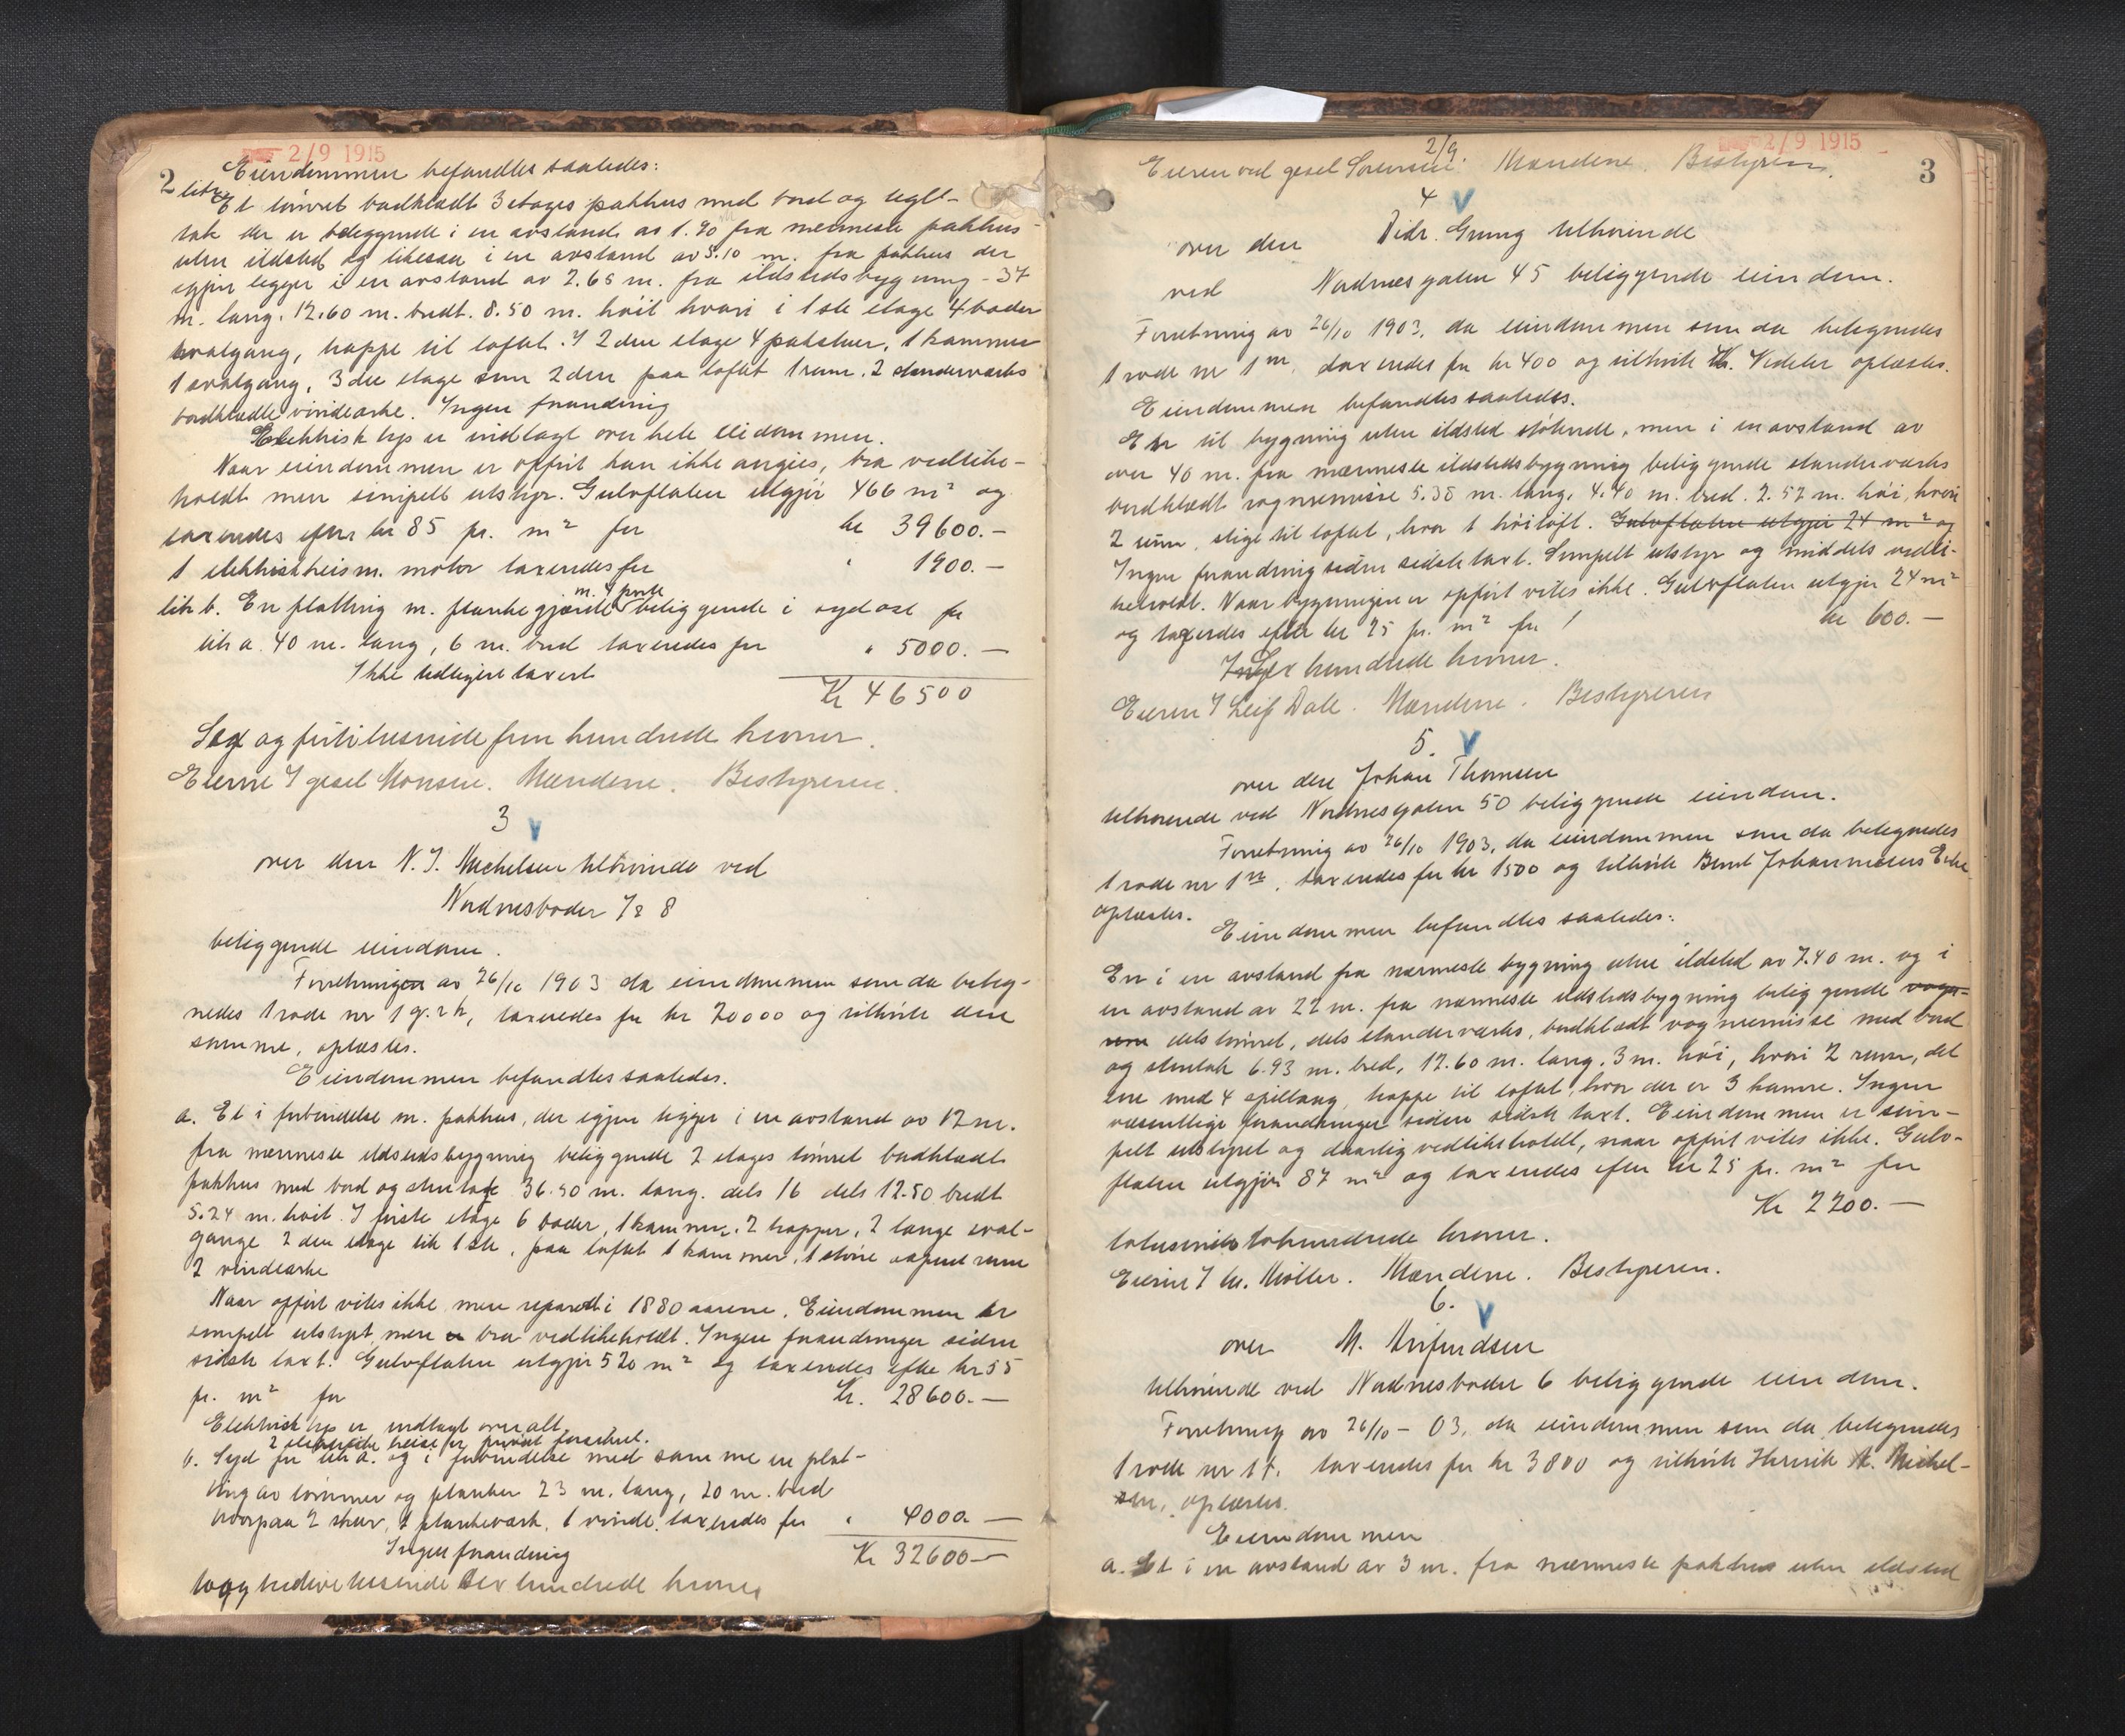 2/9 1915
2
Eiendommen befandtes saaledes:
litr a
Et tømret bordklædt 3 etages pakhus med bord og tegl-
tak der er beliggende i en avstand av 1.90 fra nærmeste pakhus
uten ildsted og likesaa i en avstand av 5.10 m. fra pakhus der
igjen ligger i en avstand av 2.65 m. fra ildstedsbygning - 37
m. lang. 12.60 m. bredt. 8.50 m. høit hvori i 1ste etage 4 boder
svalgang, trappe til loftet. I 2den etage 4 pakstuer, 1 kammer
1 svalgang, 3die etage som 2den paa loftet 1 rum. 2 stenderverks
bordklædte vindearke. Ingen forandring
Elektrisk lys er indlagt over hele eiendommen.
Naar eiendommen er opført kan ikke angies, bra vedlike-
holdt men simpelt utstyr. Gulvflaten utgjør 466 m² og
taxeredes efter kr 85 pr. m² for kr 39600.-
1 elektrisk heis m. motor taxeredes for " 1900.-
m. 1 port
litr b. En platting m. plankegjærde beliggende i sydost for
litr a. 40 m. lang, 6 m. bred taxeredes for " 5000.-
Ikke tidligere taxert
Kr 46500
Sex og førti tusinde fem hundrede kroner.
Eierne v/ gesel Monsen. Mændene. Bestyreren.
3 v
over den N. J. Michelsen tilhørende ved
Nordnesboder 7 & 8
beliggende eiendom.
Forretningen av 26/10 1903 da eiendommen som da beteg-
nedes 1 rode nr 1 q. r h, taxeredes for kr 20000 og tilhørte den
samme, oplæstes.
Eiendommen befandtes saaledes.
a. Et i forbindelse m. pakhus, der igjen ligger i en avstand av 12 m.
fra nærmeste ildstedsbygning beliggende 2 etages tømret bordklædt
pakhus med bord og stentak 36.50 m. lang. dels 16 dels 12.50 bredt
5.24 m. høit. I første etage 6 boder, 1 kammer, 2 trapper, 2 lange sval-
gange 2den etage lik 1ste, paa loftet 1 kammer, 1 større aapent rum
2 vindearke
Naar opført vites ikke men reparert i 1880 aarene. Eiendommen er
simpelt utstyrt men bra vedlikeholdt. Ingen forandringer siden
sidste taxt. Gulvflaten utgjør 520 m² og taxeredes efter kr 55
pr. m² for Kr. 28600.-
Elektrisk lys er indlagt overalt.
2 elektriske heise er privat forsikret.
b. Syd for litr a. og i forbindelse med samme en plat-
ting av tømmer og planker 23 m. lang, 20 m. bred
hvorpaa 2 skur, 1 plankeverk, 1 vinde. taxeredes for " 4000 -
Ingen forandring
Kr 32600 -
to og tredive tusinde sex hundrede kroner
2/9 1915
3
2/9.
Eieren ved gesel Sørensen. Mændene. Bestyreren.
4 v
over den Didr. Grung tilhørende
ved Nordnesgaten 45 beliggende eiendom.
Forretning av 26/10 1903, da eiendommen som da betegnedes
1 rode nr 1 m, taxeredes for kr 400 og tilhørte Vedeler oplæstes.
Eiendommen befandtes saaledes.
En til bygning uten ildsted støtende, men i en avstand av
over 40 m. fra nærmeste ildstedsbygning beliggende stenderverks
bordklædt vognremisse 5.38 m. lang. 4.40 m. bred. 2.52 m. høi, hvori
2 rum, stige til loftet, hvor 1 høiloft. Gulvflaten utgjør 24 m² og
Ingen forandring siden sidste taxt. Simpelt utstyr og middels vedli-
keholdt. Naar bygningen er opført vites ikke. Gulvflaten utgjør 24 m²
og taxeredes efter kr 25 pr. m² for kr 600.-
Sex hundrede kroner.
Eieren v/ Leif Dale. Mændene. Bestyreren
5. v
over den Johan Thomsen
tilhørende ved Nordnesgaten 50 beliggende eiendom.
Forretning av 26/10 1903, da eiendommen som da betegnedes
1 rode nr 1 n, taxeredes for kr 1500 og tilhørte Bernt Johannesens Enke
oplæstes.
Eiendommen befandtes saaledes:
En i en avstand fra nærmeste bygning uten ildsted av 7.40 m. og i
en avstand av 22 m. fra nærmeste ildstedsbygning beliggende vogn-
rem dels tømret, dels stenderverks, bordklædt vognremisse med bord
og stentak 6.93 m. bred, 12.60 m. lang. 3 m. høi, hvori 2 rum, det
ene med 4 spiltaug, trappe til loftet, hvor der er 3 kamre. Ingen
væsentlige forandringer siden sidste taxt. Eiendommen er sim-
pelt utstyret og daarlig vedlikeholdt, naar opført vites ikke. Gulv-
flaten utgjør 87 m² og taxeredes efter kr 25 pr. m² for
Kr 2200.-
totusinde tohundrede kroner.
Eieren v/ hr. Møller. Mændene. Bestyreren.
6. v
over M.
tilhørende ved Nordnesboder 6 beliggende eiendom.
Forretning av 26/10 - 03, da eiendommen som da betegnedes
1 rode nr 1 t, taxeredes for kr 3800 og tilhørte Henrik M. Michel-
sen, oplæstes.
Eiendommen
a. Et i en avstand av 3 m. fra nærmeste pakhus uten ildsted